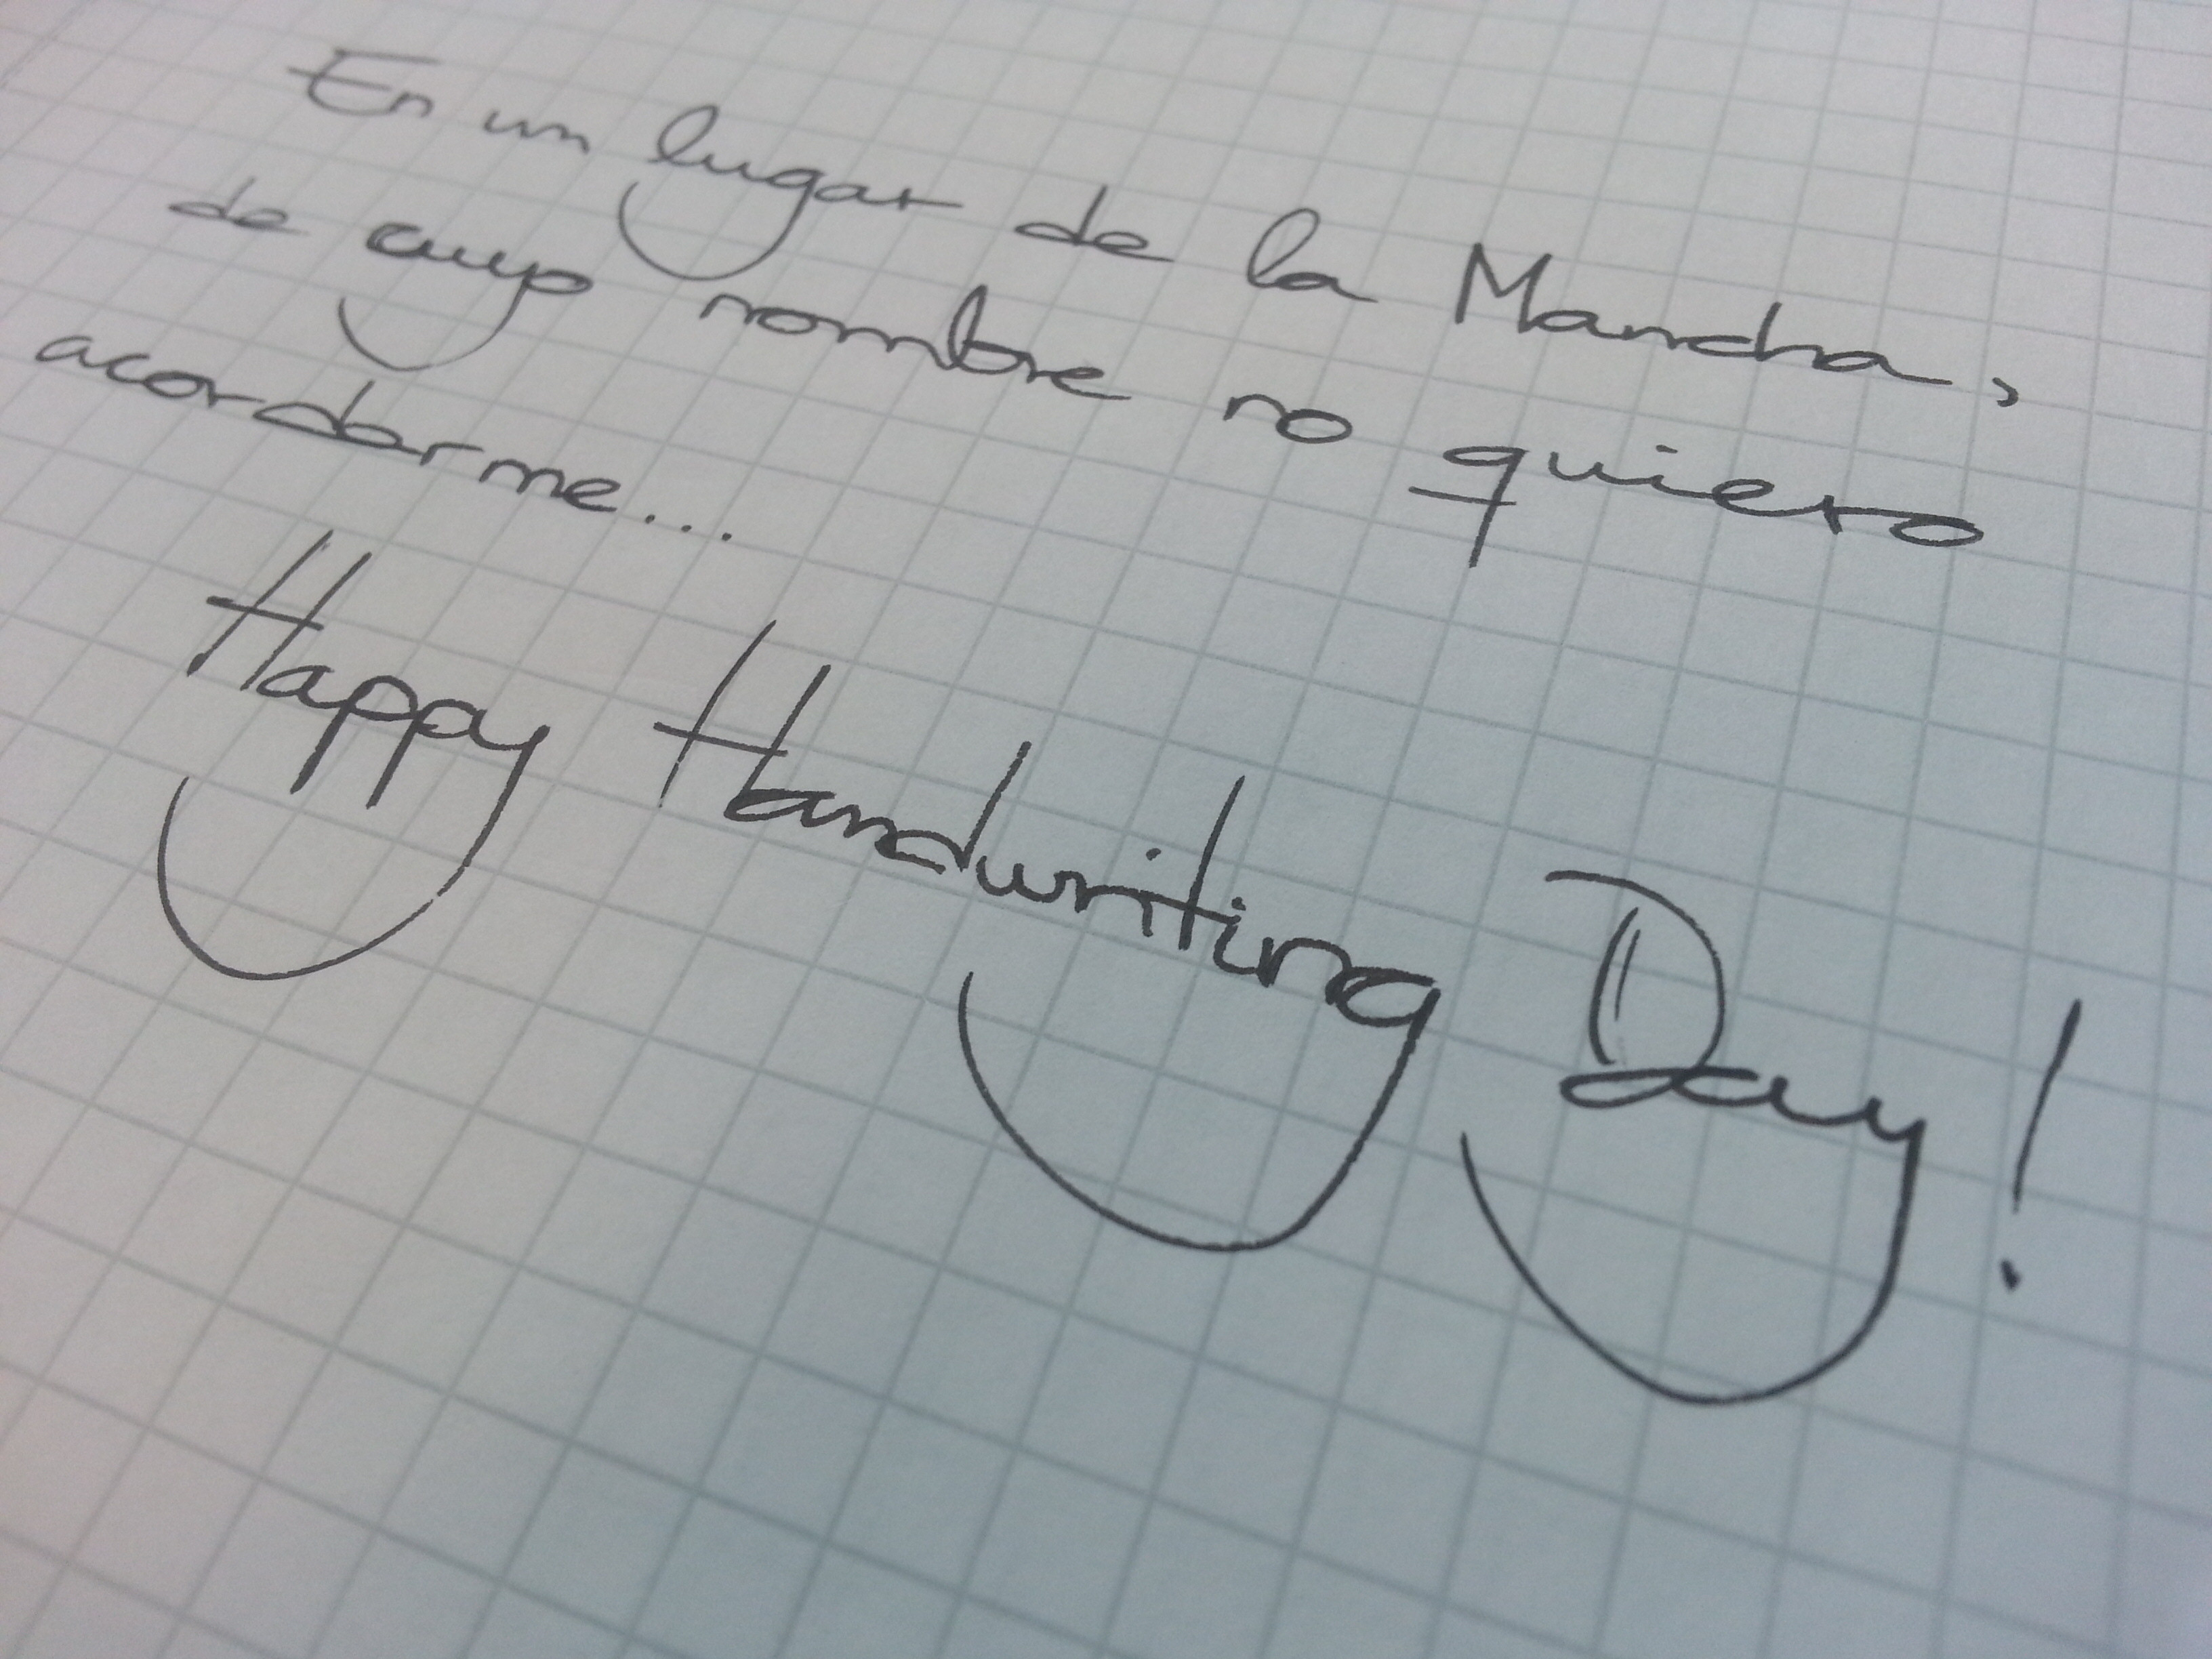 En un lugar de la Mancha,
de cuyo nombre no quiero
acordarme...
Happy Handwriting Day!